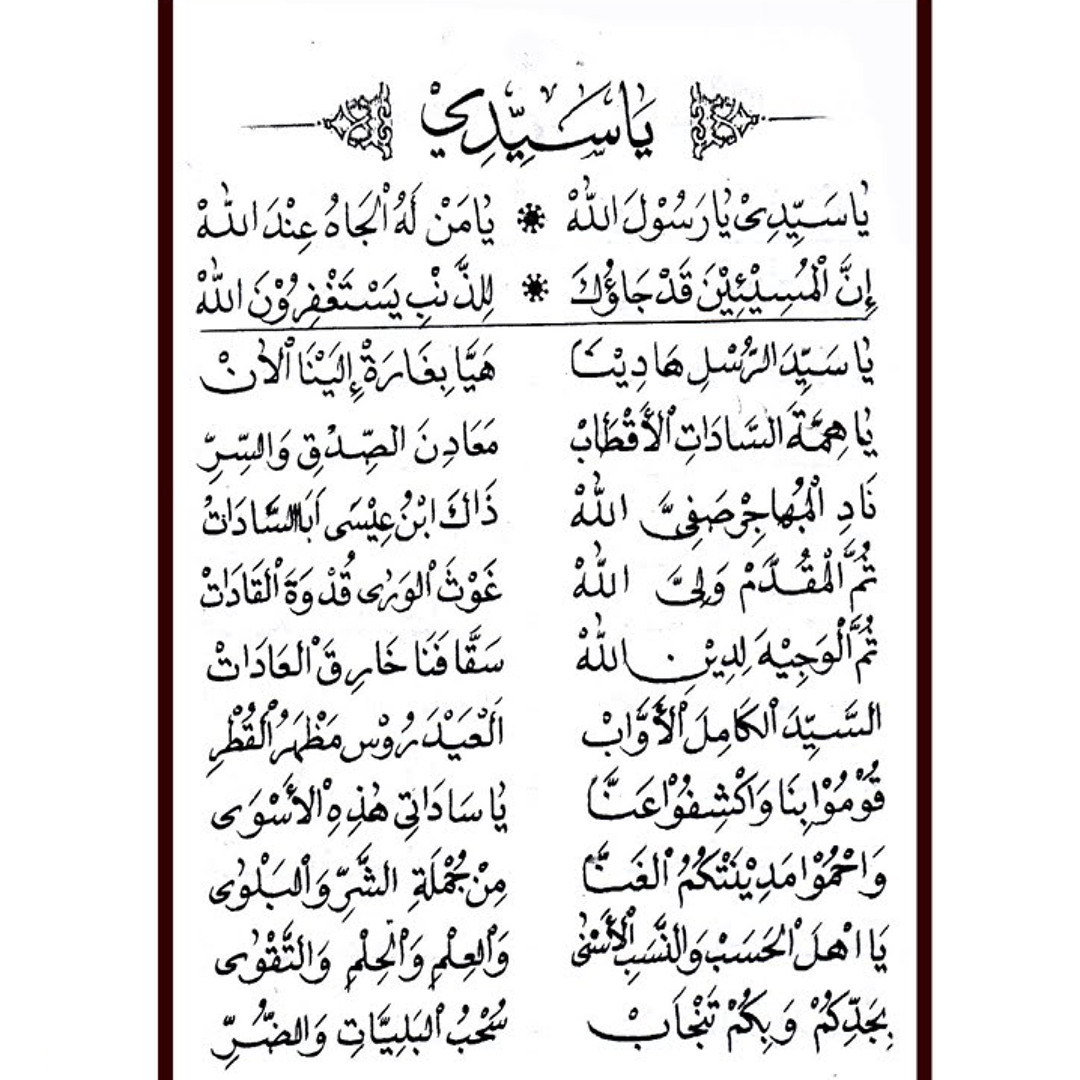 يَاسَيِّدِيْ
يَاسَيِّدِيْ يَارَسُوْلَ اللهْ ❋ يَامَنْ لَهُ الْجَاهُ عِنْدَ اللهْ
إِنَّ الْمُسِيْئِيْنَ قَدْ جَاؤُكَ ❋ لِلذَّنْبِ يَسْتَغْفِرُوْنَ اللهْ
يَا سَيِّدَ الرُّسْلِ هَادِيْنَا هَيَّا بِغَارَةْ إِلَيْنَا الْاٰنْ
يَا هِمَّةَ السَّادَاتِ الْأَقْطَابْ مَعَادِنَ الصِّدْقِ وَالسِّرِّ
نَادِ الْمُهَاجِرْ صَفِيَّ اللهْ ذَاكَ ابْنُ عِيْسَى اَبَا السَّادَاتْ
ثُمَّ الْمُقَدَّمْ وَلِيَّ اللهْ غَوْثَ الْوَرٰى قُدْوَةَ الْقَادَاتْ
ثُمَّ الْوَجِيْهَ لِدِيْنِ اللهْ سَقَّافَنَا خَارِقَ الْعَادَاتْ
السَّيِّدَ الْكَامِلَ الْأَوَّابْ اَلْعَيْدَرُوْسْ مَظْهَرُ الْقُطْرِ
قُوْمُوْا بِنَا وَاكْشِفُوْا عَنَّا يَا سَادَاتِى هٰذِهِ الْأَسْوٰى
وَاحْمُوْا مَدِيْنَتْكُمُ الْغَنَّا مِنْ جُمْلَةِ الشَّرِّ وَالْبَلْوٰى
يَا اهْلَ الْحَسَبْ وَالنَّسَبِ الْأَسْنٰى وَالْعِلْمِ وَالْحِلْمِ وَالتَّقْوٰى
بِجَدِّكُمْ وَبِكُمْ تَنْجَابْ سُحْبُ الْبَلِيَّاتِ وَالضُّرِّ